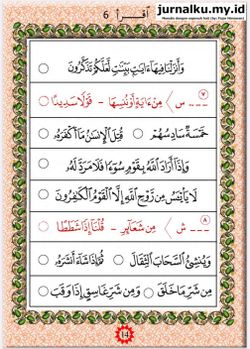 jurnalku.my.id
اقرأ 6
وَأَنزَلْنَا فِيهَا ءَايَٰتٍۭ بَيِّنَٰتٍ لَّعَلَّكُمْ تَذَكَّرُونَ
٧ --- س > مِنْ ءَايَةٍ أَوْ نُنسِهَا - قَوْلًا سَدِيدًا
خَمْسَةٌ سَادِسُهُمْ ○ قُتِلَ الْإِنسَٰنُ مَا أَكْفَرَهُۥ
وَإِذَا أَرَادَ اللَّهُ بِقَوْمٍ سُوٓءًا فَلَا مَرَدَّ لَهُۥ
لَا يَا۟يْـَٔسُ مِن رَّوْحِ اللَّهِ إِلَّا الْقَوْمُ الْكَٰفِرُونَ
٨ --- ش > مِن شَعَآئِرِ - قُلْنَآ إِذًا شَطَطًا
وَيُنشِئُ السَّحَابَ الثِّقَالَ ○ ثُمَّ إِذَا شَآءَ أَنشَرَهُۥ
مِن شَرِّ مَا خَلَقَ ○ وَمِن شَرِّ غَاسِقٍ إِذَا وَقَبَ
14